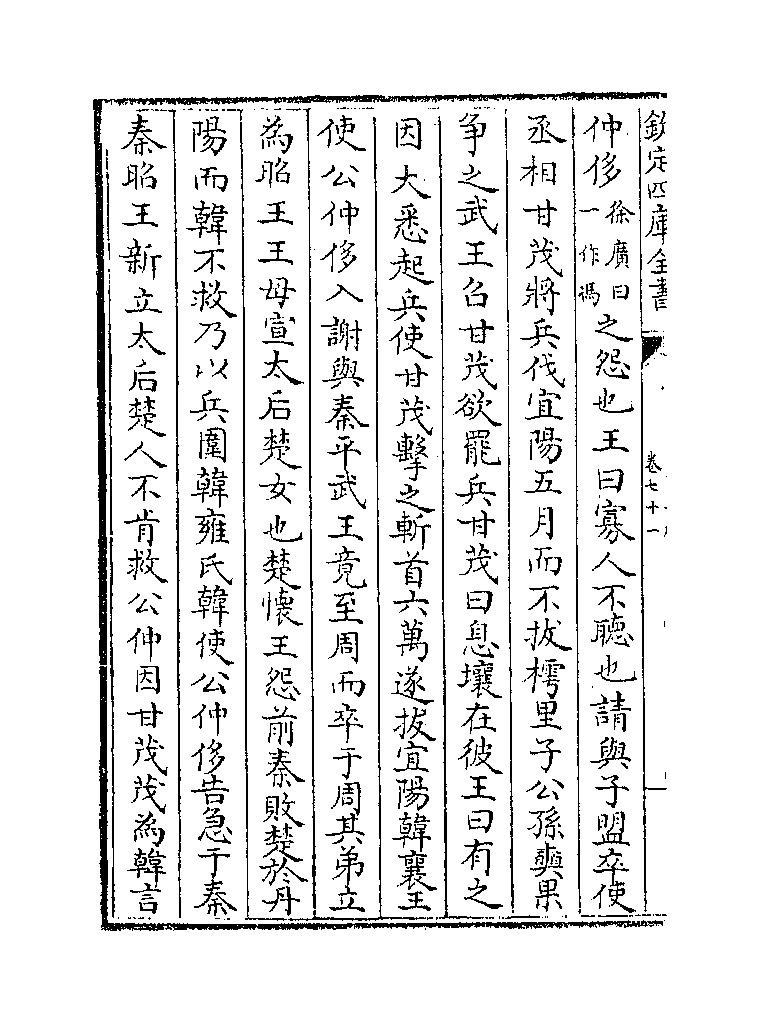 欽定四庫全書
卷七十一
仲侈徐廣曰一作馮之怨也王曰寡人不聽也請與子盟卒使
丞相甘茂將兵伐宜陽五月而不拔樗里子公孫奭果
爭之武王召甘茂欲罷兵甘茂曰息壤在彼王曰有之
因大悉起兵使甘茂擊之斬首六萬遂拔宜陽韓襄王
使公仲侈入謝與秦平武王竟至周而卒于周其弟立
為昭王王母宣太后楚女也楚懷王怨前秦敗楚於丹
陽而韓不救乃以兵圍韓雍氏韓使公仲侈告急于秦
秦昭王新立太后楚人不肯救公仲因甘茂茂為韓言